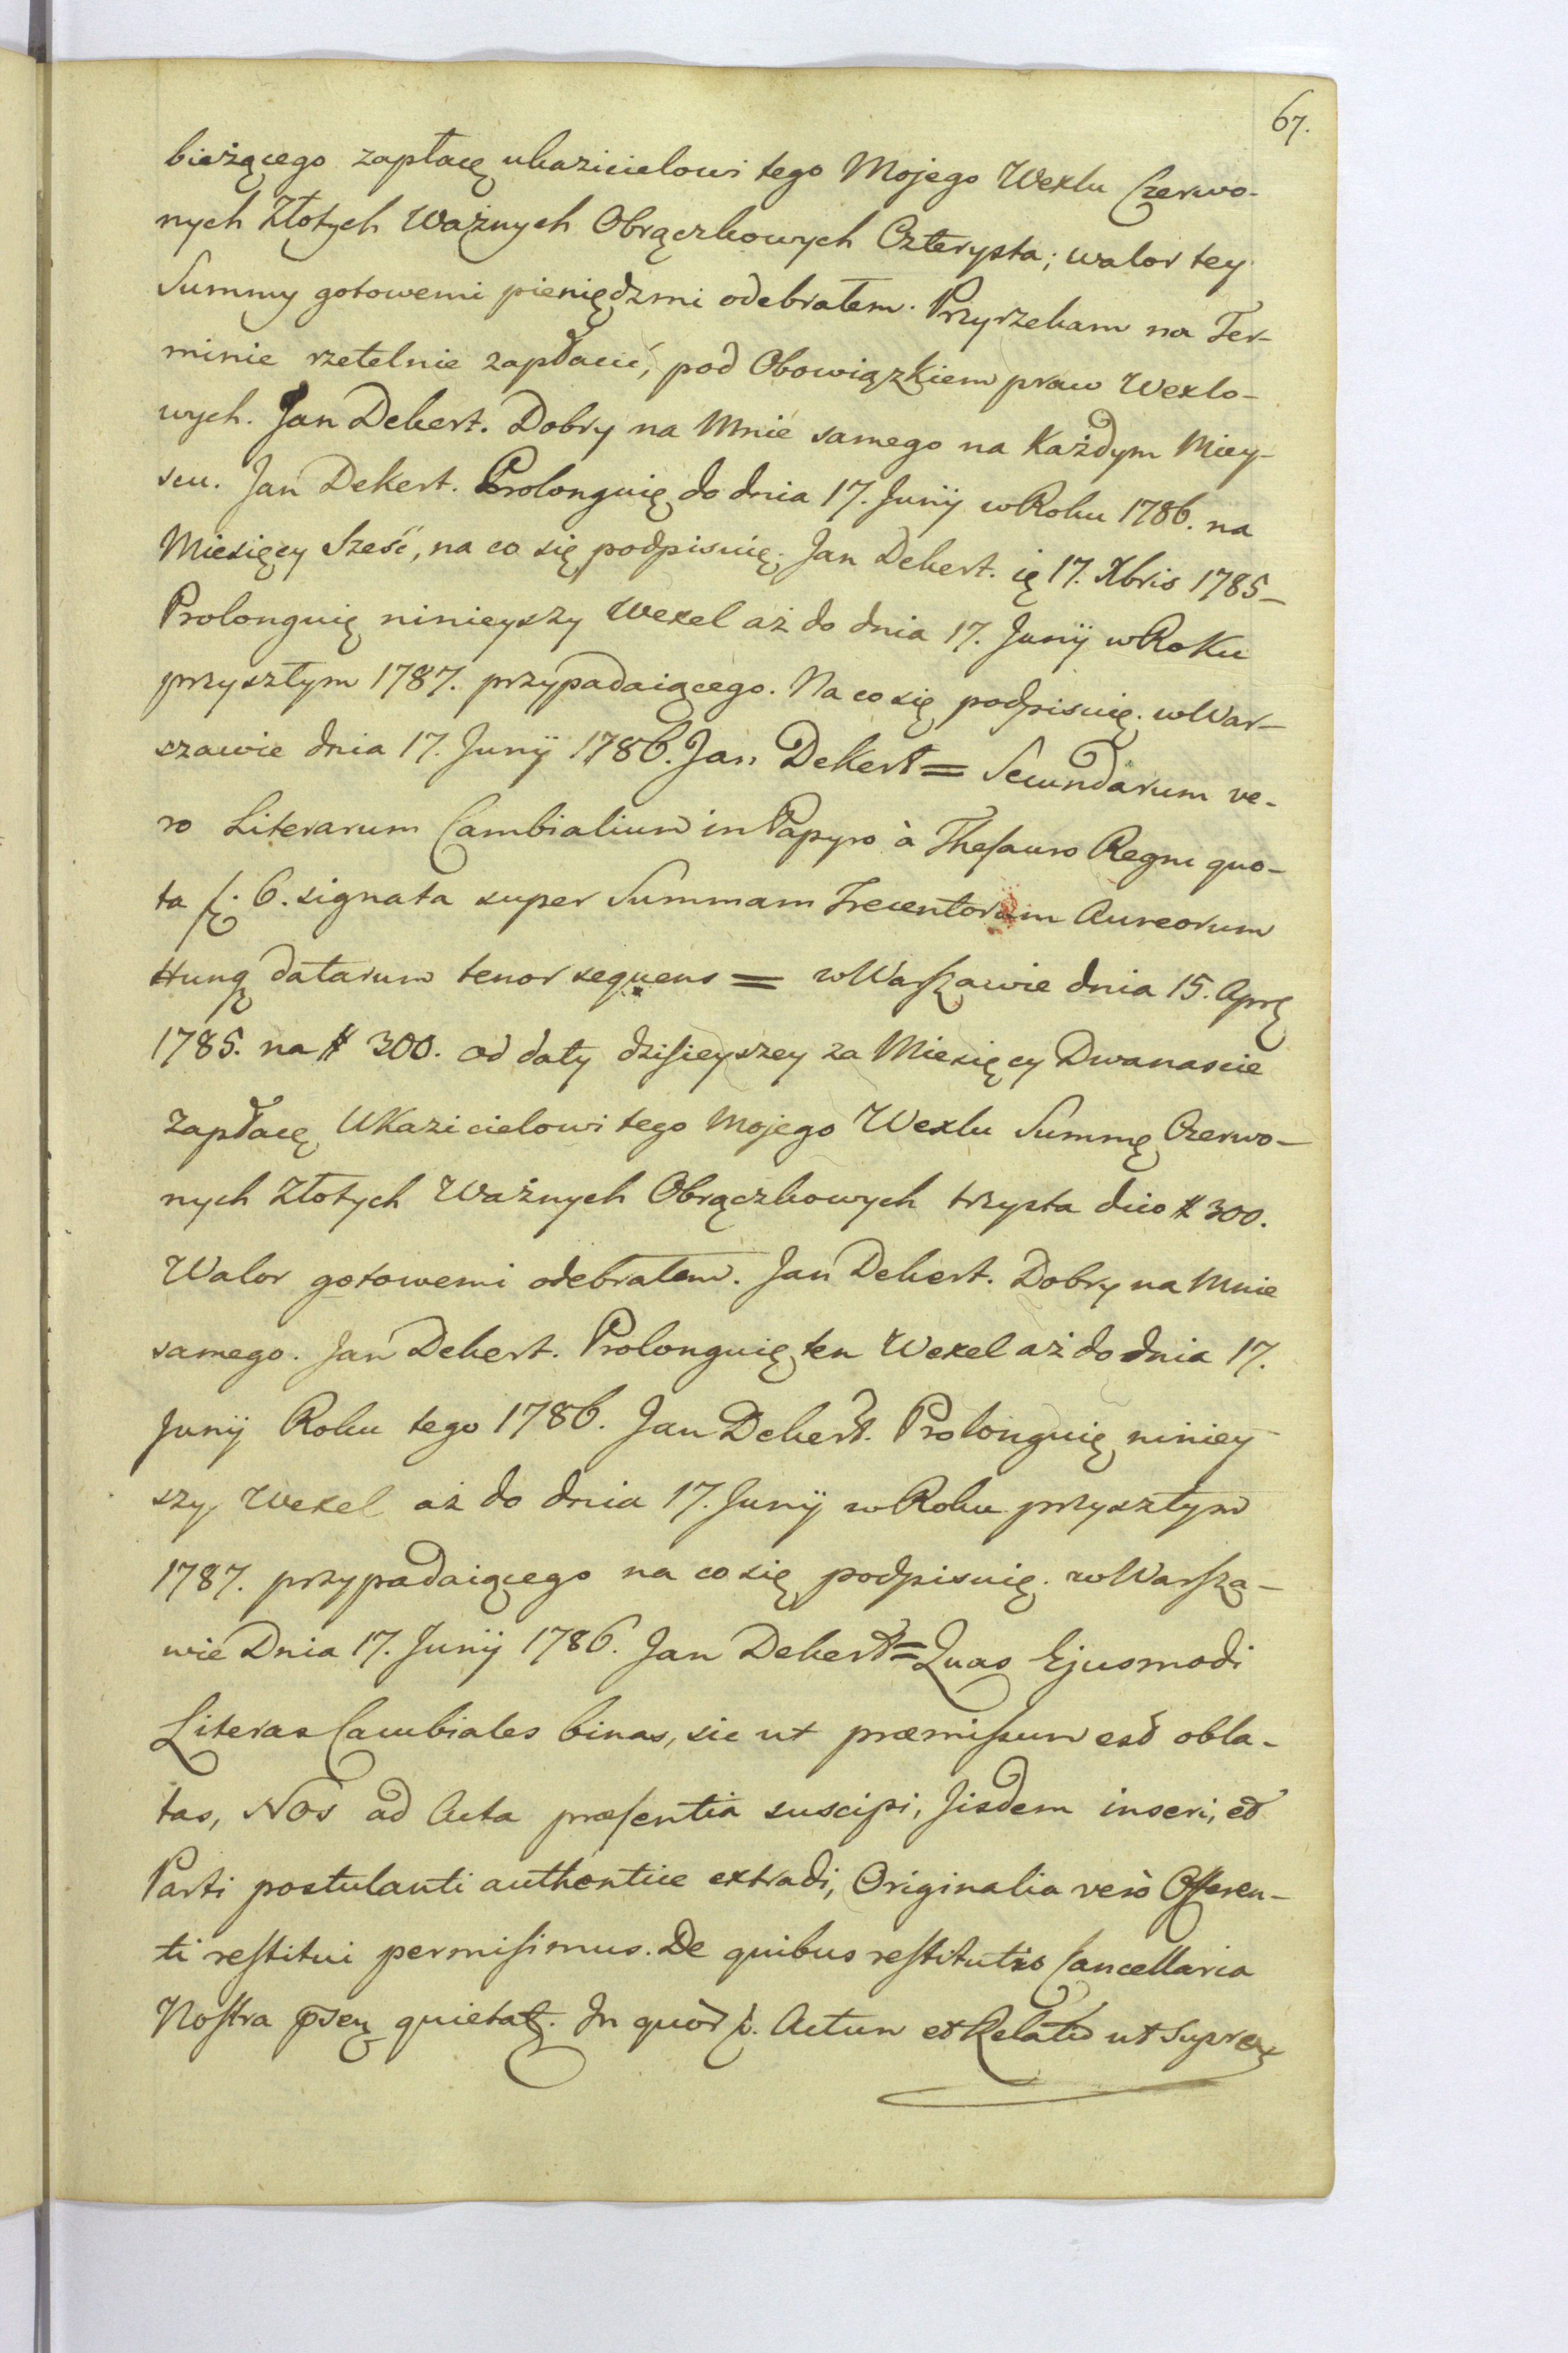 67.
bieżącego zapłacę ukazicielowi tego Mojego Wexlu Czerwo-
nych Złotych Ważnych Obrączkowych Czterysta; walor tey
Summy gotowemi pieniędzmi odebrałem. Przyrzekam na Ter-
minie rzetelnie zapłacić, pod Obowiązkiem praw Wexlo-
wych. Jan Dekert. Dobry na Mnie samego na Każdym Miey-
scu. Jan Dekert. Prolonguię do dnia 17. Junij w Roku 1786. na
Miesięcy Sześć, na co się podpisuię. Jan Dekert. 17. Xbris 1785-
Prolonguię ninieyszy Wexel aż do dnia 17. Junij w Roku
przyszłym 1787. przypadaiącego. Na co się podpisuię. w War-
szawie dnia 17. Junij 1786. Jan Dekert = Secundarum ve-
ro Literarum Cambialium in Papyro à Thesauro Regni quo-
ta f. 6. signata super Summam Trecentorum Aureorum
Hung datarum tenor sequens = w Warszawie dnia 15. Apr
1785. na # 300. od daty dzisieyszey za Miesięcy Dwanascie
zapłacę Ukazicielowi tego Mojego Wexlu Summę Czerwo-
nych Złotych Ważnych Obrączkowych trzysta dico # 300.
Walor gotowemi odebrałem. Jan Dekert. Dobry na Mnie
samego. Jan Dekert. Prolonguię ten Wexel aż do dnia 17.
Junij Roku tego 1786. Jan Dekert. Prolonguię niniey-
szy Wexel aż do dnia 17. Junij w Roku przyszłym
1787. przypadaiącego na co się podpisuię. w Warsza-
wie Dnia 17. Junij 1786. Jan Dekert = Quas Ejusmodi
Literas Cambiales binas, sic ut præmissum est obla-
tas, Nos ad Acta præsentia suscipi, Jisdem inseri, et
Parti postulanti authentice extradi, Originalia verò Offeren-
ti restitui permisimus. De quibus restitutis Cancellaria
Nostra quietat. In quor f. Actum et Relat ut supra